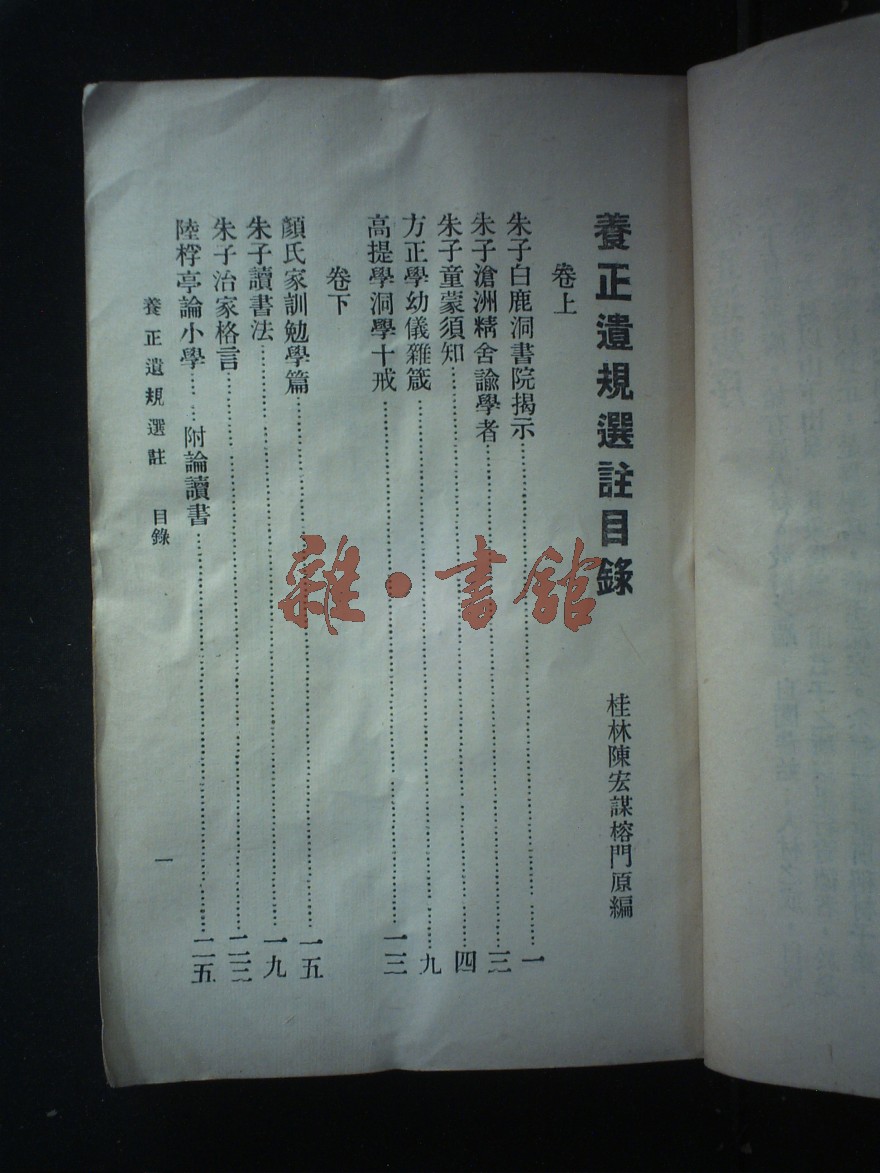 養正遺規選註目錄
桂林陳宏謀榕門原編
卷上
朱子白鹿洞書院揭示……一
朱子滄洲精舍諭學者……三
朱子童蒙須知……四
方正學幼儀雜箴……九
高提學洞學十戒……一三
卷下
顏氏家訓勉學篇……一五
朱子讀書法……一九
朱子治家格言……二三
陸桴亭論小學……附論讀書……二五
養正遺規選註 目錄
一
雜·書館